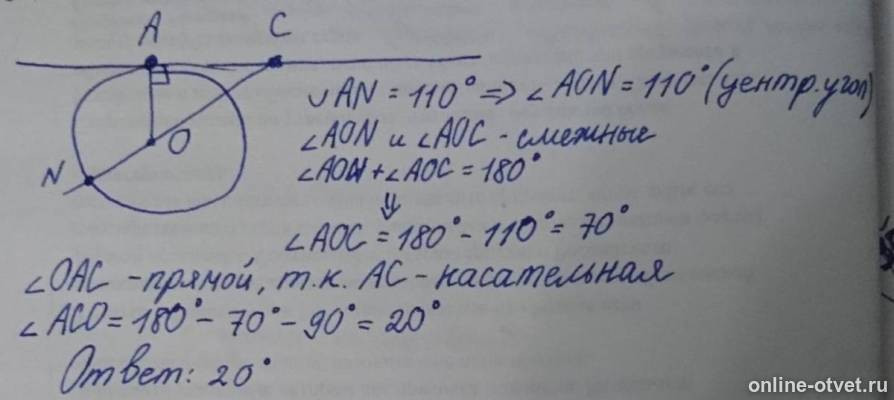 A C
O
N
∪AN = 110° => ∠AON = 110° (центр. угол)
∠AON и ∠AOC - смежные
∠AON + ∠AOC = 180°
⇓
∠AOC = 180° - 110° = 70°
∠OAC - прямой, т.к. AC - касательная
∠ACO = 180° - 70° - 90° = 20°
Ответ: 20°
online-otvet.ru